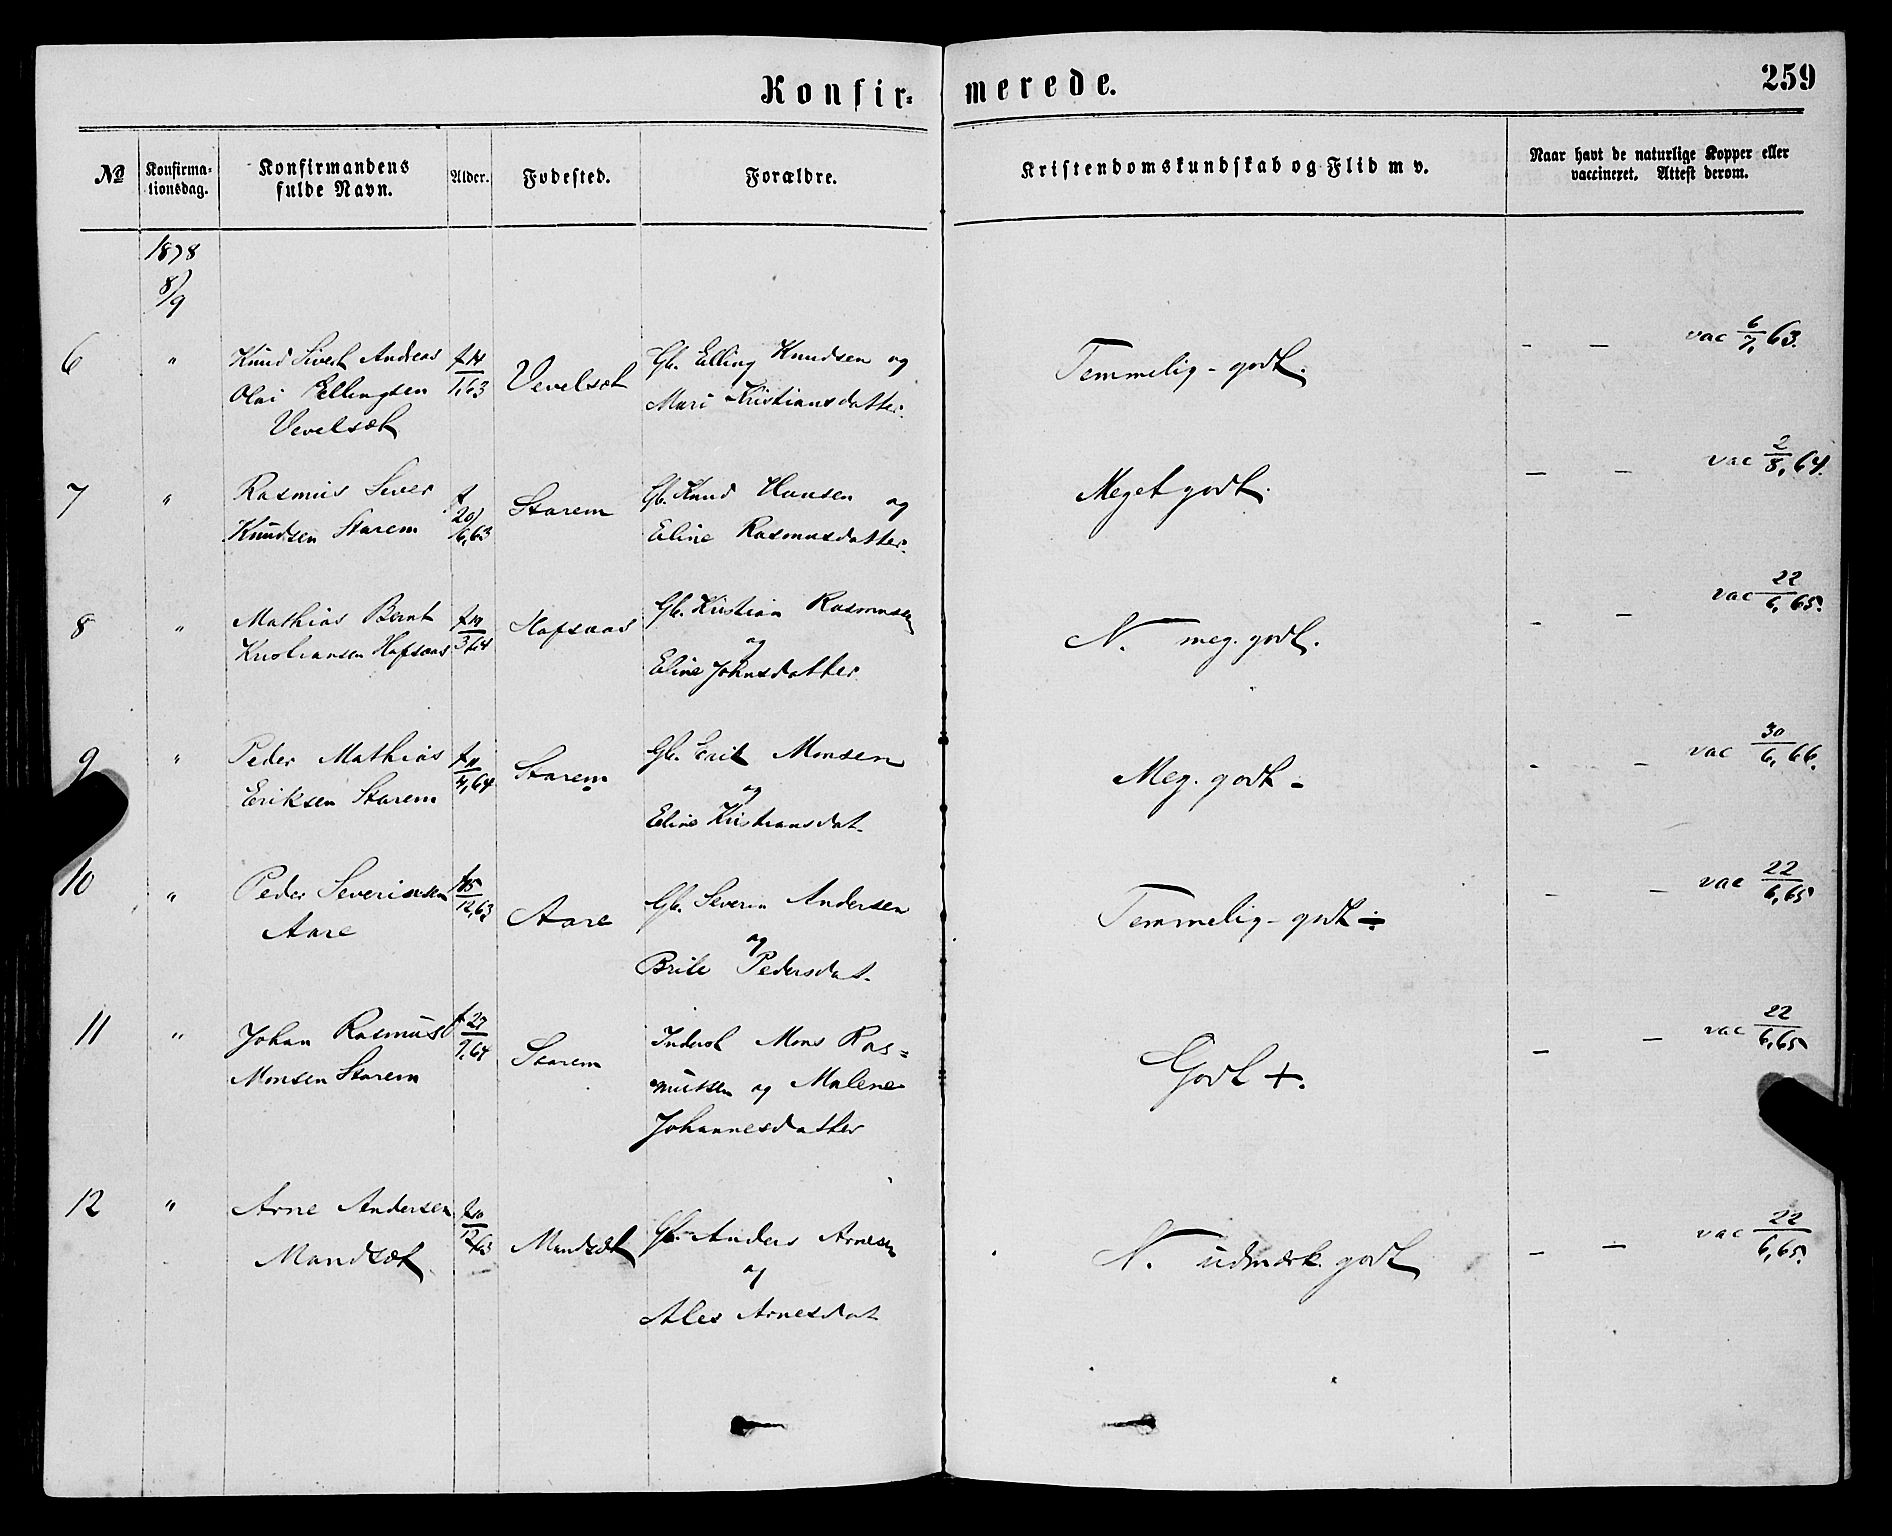 Konfir= merede. 259
№ Konfirma-tionsdag. Konfirmandens fulde Navn. Alder. Fødested. Forældre. Kristendomskundskab og Flid m v. Naar havt de naturlige Kopper eller vaccineret. Attest derom.
1878
8/9
6 " Knud Sivert Andreas f. 14 Vevelsæt Gb. Elling Knudsen og Temmelig - godt. — — vac 6/7, 63.
Olai Ellingsen 1, 63 Mari Kristiansdatter.
Vevelsæt
7 " Rasmus Sever f. Starem Gb. Knud Hansen og Meget godt. — — vac 2/8, 64.
Knudsen Starem 20/6, 63 Eline Rasmusdatter.
8 " Mathias Bernt Hafsaas Gb. Kristian Rasmusen N. meg. godt. - — vac 22/6, 65.
Kristiansen Hafsaas 3 64 og
Eline Johnsdatter
9 " Peder Mathias f. 11 Starem Gb. Erik Monsen Meg. godt - - — vac 30/6, 66.
Eriksen Starem 4, 64 og
Eline Kristiansdat.
10 " Peder Severinsen 15 Aare Gb. Severin Andersen Temmelig - godt ÷ — — vac 22/6, 65
Aare 12, 63 og
Brite Pedersdat.
11 " Johan Rasmus f. 27 Starem Inderst Mons Ras= Godt +. — — vac 22/6, 65
Monsen Starem 64 mussen og Malene
Johannesdatter
12 " Arne Andersen Mandsæt Gb. Anders Arnesen N. udmærk. godt — — vac 22/6, 65.
Mandsæt 12 63 og
Ales Arnesdat